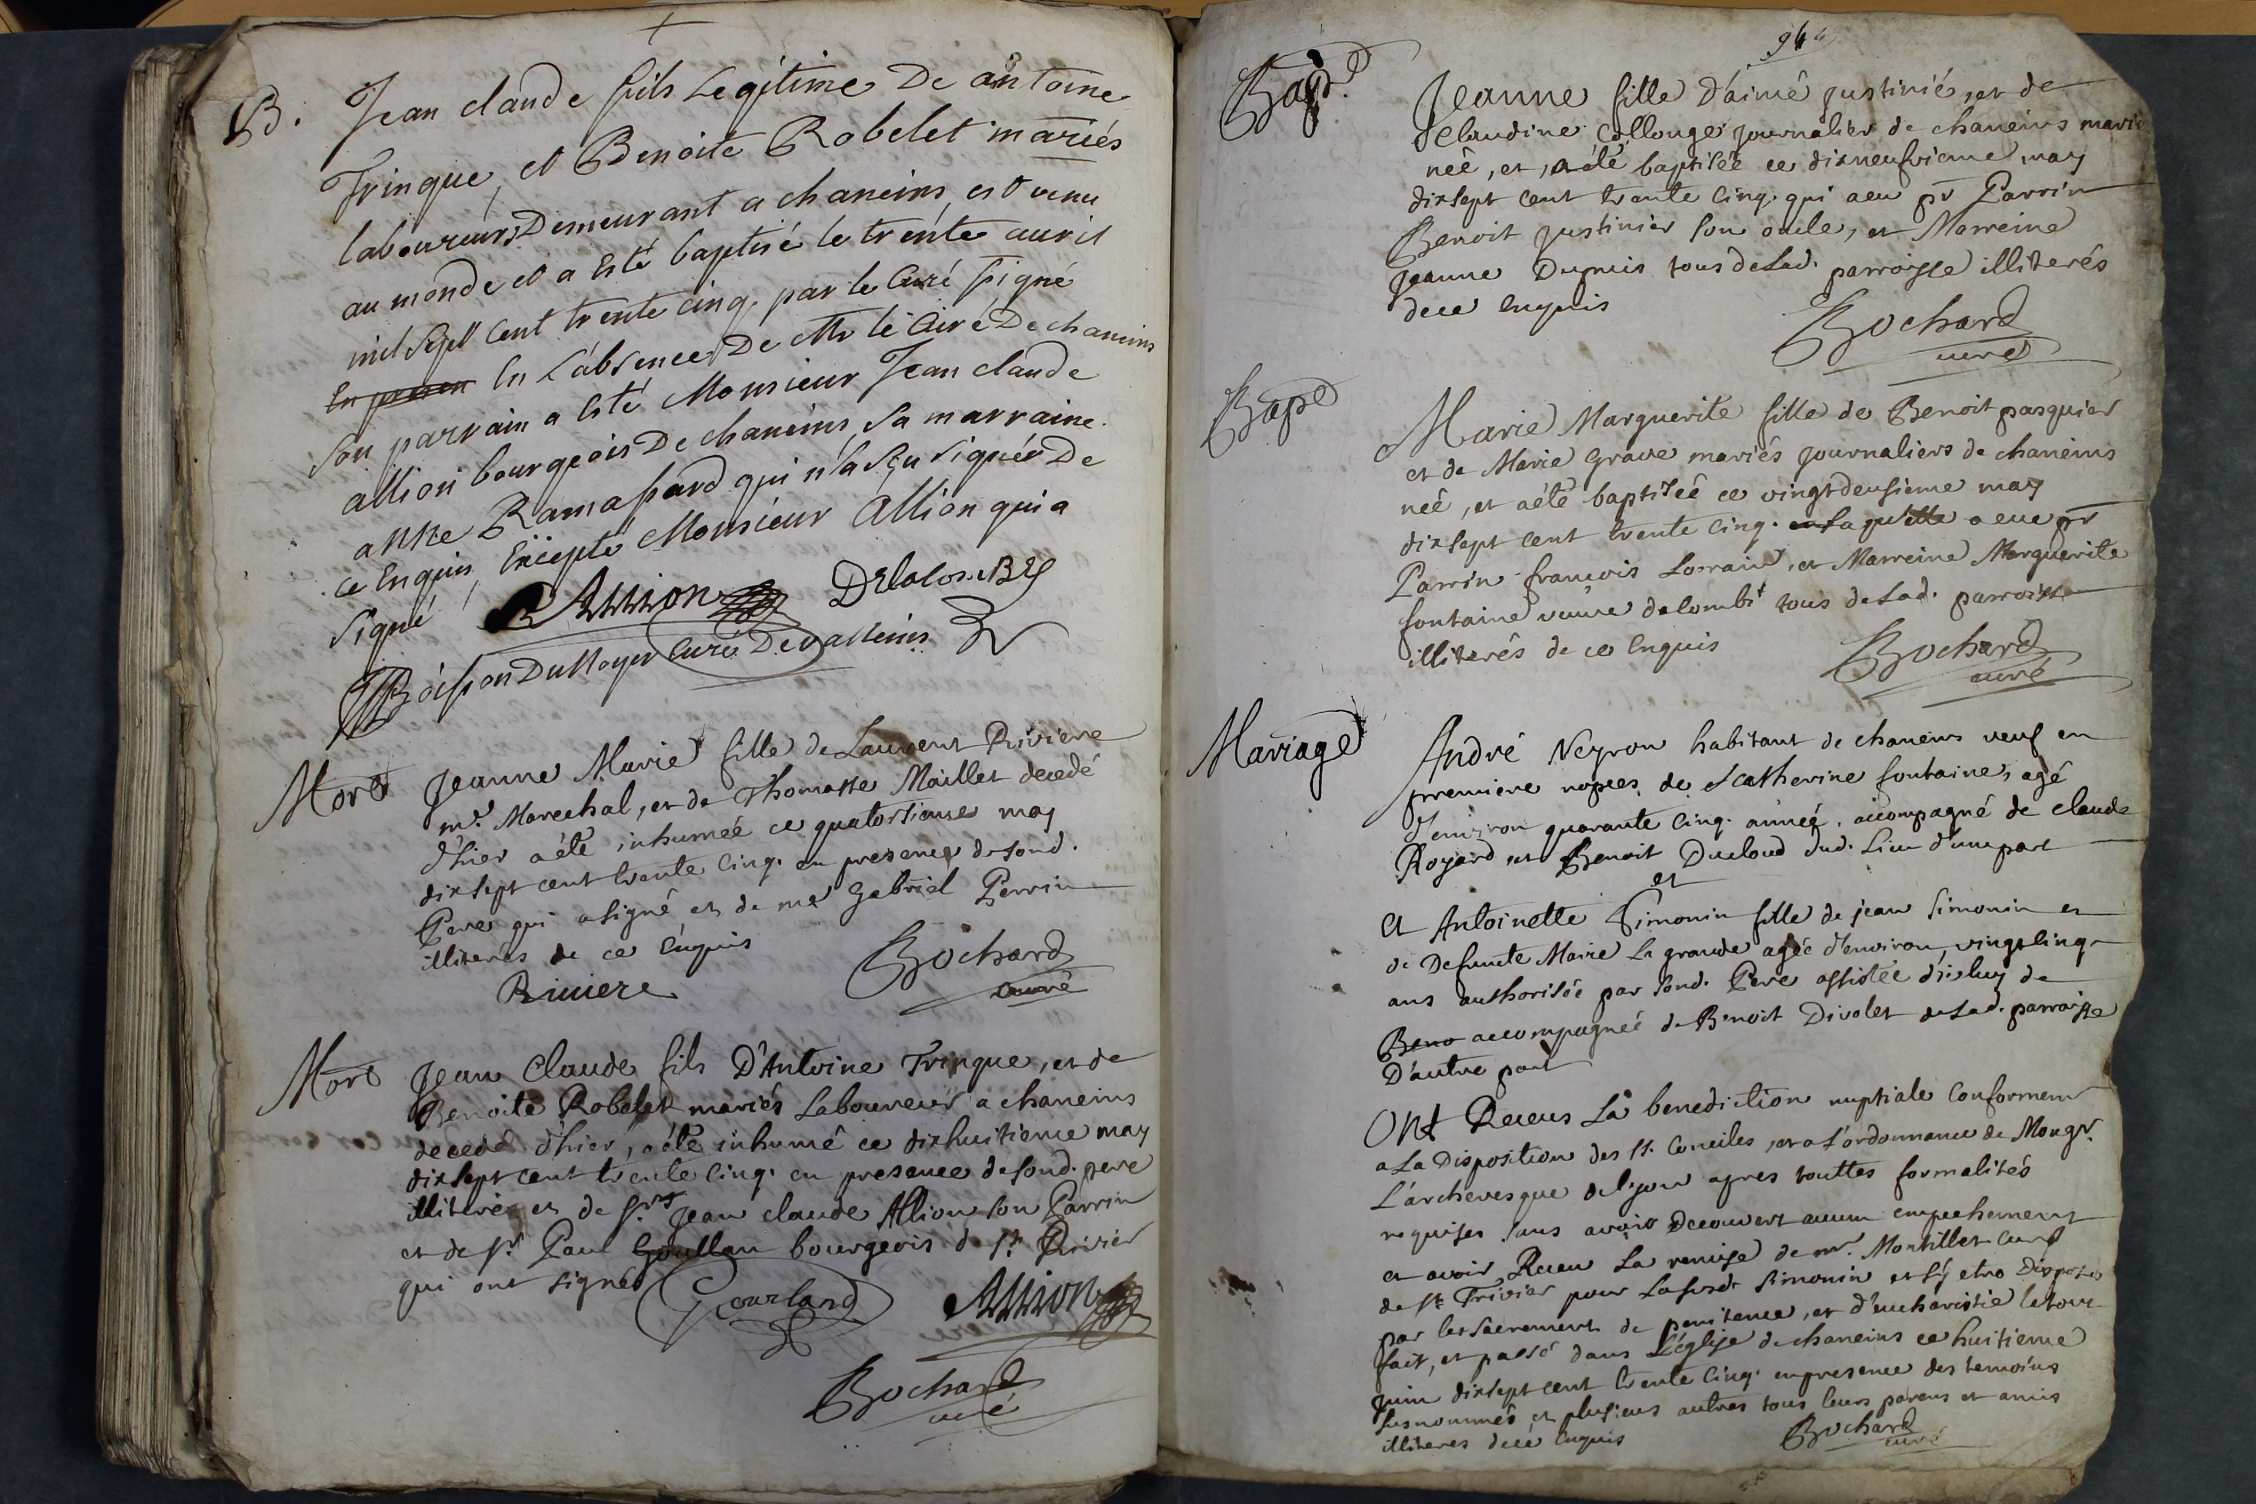 B. Jean claude fils Legitime De antoine
Trinque, et Benoite Robelet mariés
laboureurs Demeurant a chaneins, est venu
au monde et a esté baptisé le trente auril
mil sept cent trente cinq. par le Curé signé
En En L'absence De Mr le Curé De chaneins
Son parrain a esté Monsieur Jean claude
allion bourgeois De chaneins, Sa marraine
anne Ramassard qui n'a sçu signér De
ce Enquis, Excepté Monsieur Allion qui a
signé Allion Delacombe
Boisson Dunoyer Curé De valleins
Mort Jeanne Marie fille de Laurent Riviere
md. Marechal, et de Thomasse Maillet decedé
d'hier a été inhumée ce quatorsieme may
dixsept cent trente cinq. en presence de sond.
Pere qui a signé et de me Gabriel Perrin
illiterés de ce enquis
Riviere Bochard
curé
Mort Jean Claude fils D'Antoine Trinque, et de
Benoite Robelet mariés Laboureur a chaneins
decedé d'hier, a été inhumé ce dixhuitieme may
dixsept cent trente cinq. en presence de sond. pere
illiterés et de srs Jean claude Allion son Parrin
et de sr. Paul bourgeois de st. Trivier
qui ont signés Gourland Allion
Bochard
curé
944
Bapt. Jeanne fille d'aimé justinié, et de
Claudine Collonge journalier de chaneins marié
née, et, a été baptisée ce dixneufvieme may
dixsept cent trente cinq. qui a eu pr Parrin
Benoit justinier son oncle, et Marreine
Jeanne Dupuis tous de Lad. parroisse illiterés
de ce enquis
Bochard
curé
Bapt Marie Marguerite fille de Benoit pasquier
et de Marie Grave mariés journaliers de chaneins
née, et a été baptisée ce vingtdeusieme may
dixsept cent trente cinq. laquelle a eue pr
Parrin françois Lorrain, et Marreine Marguerite
fontaine veuve delombt tous de Lad. parroisse
illiterés de ce enquis
Bochard
curé
Mariage André Neyron habitant de chaneins veuf en
premiere nopces de Catherine fontaine, agé
d'environ quarante cinq. année, accompagné de claude
Royard et Benoit Ducloud dud. Lieu d'une part
et
et Antoinette Simonin fille de jean Simonin et
de Defuncte Marie La grande agée d'environ vingtcinq.
ans authorisée par sond. Pere assistée d'icluy de
Beno accompagnée de Benoit Divolet de Lad. parroisse
D'autre part
Ont Receus La benediction nuptiale Conformement
a La Disposition des St. Conciles, et a L'ordonnance de Mongr.
L'archevesque de lyon apres touttes formalités
requises sans avoir Decouvert aucun empechement
et avoir Receu La remise de mr. Montillet Curé
de St. Trivier pour La susd. Simonin et s'y etre Disposés
par les sacrements de penitence, et d'eucharistie le tout
fait, et passé dans L'église de chaneins ce huitieme
juin dixsept cent trente cinq. en presence des temoins
susnommés, et plusieurs autres tous leurs parens et amis
illiteres de ce enquis Bochard
curé